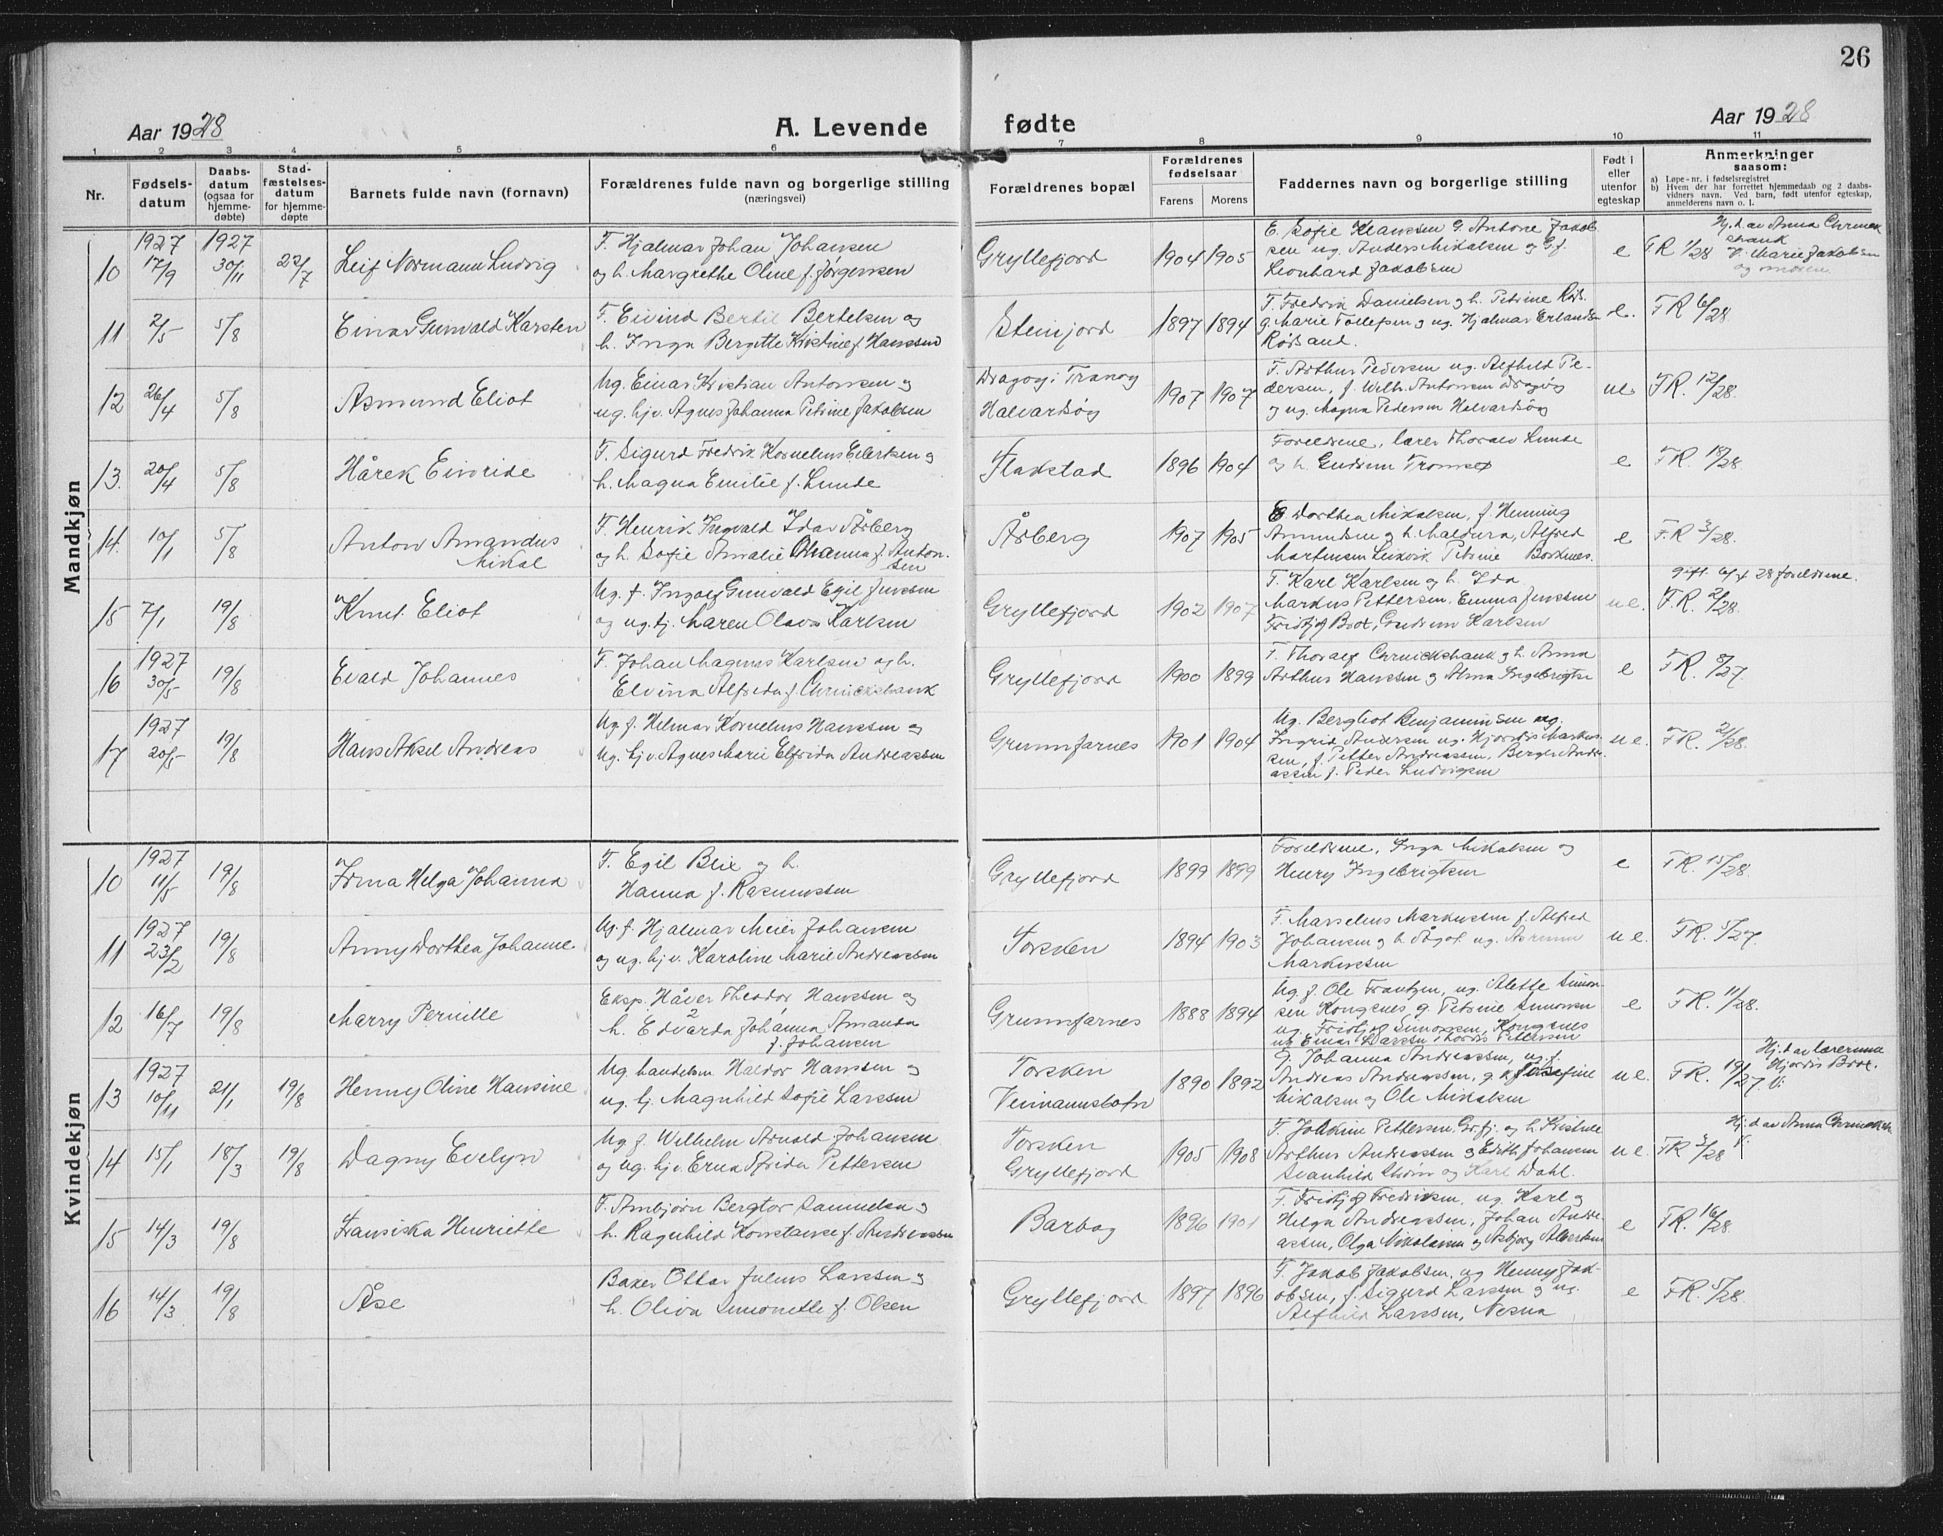 26
Aar 1928
A. Levende fødte
Aar 1928
1 2 3 4 5 6 7 8 9 10 11
Nr.
Fødsels-
datum
Daabs-
datum
(ogsaa for
hjemme-
døbte)
Stad-
fæstelses-
datum
for hjemme-
døpte
Barnets fulde navn (fornavn)
Forældrenes fulde navn og borgerlige stilling
(næringsvei)
Forældrenes bopæl
Forældrenes
fødselsaar
Farens
Morens
Faddernes navn og borgerlige stilling
Født i
eller
utenfor
egteskap
Anmerkninger
saasom:
a) Løpe-nr. i fødselsregistret
b) Hvem der har forrettet hjemmedaab og 2 daabs-
vidners navn. Ved barn, født utenfor egteskap,
anmelderens navn o. l.
Mandkjøn
10
1927
17/9
1927
30/11
22/7
Leif Normann Ludvig
F. Hjalmar Johan Johansen
og h. Margrethe Oline f. Jørgensen
Gryllefjord
1904 1905
E. Sofie Klaussen G. Antone Jakob
sen ug. Anders Mikalsen og G. f.
Leonhard Jakobsen
e
FR 1/28
Hj. d. av Anna Chrnick
shank
V. Marie Jakobsen
og moren
11
2/5
5/8
Einar Gunvald Karsten
F. Eivind Bertil Bertelsen og
h. Inga Bergitte Kristine f. Hanssen
Steinfjord
1897 1894
F. Fredrik Danielsen og h. Petrine Røds.
g. Marie Tollefsen og ug. Hjalmar Erlandsen
Rødsand.
e.
FR 6/28
12
26/4
5/8
Asmund Eliot
Ug. Einar Kristian Antonsen og
ug. hjv. Agnes Johanna Petrine Jakobsen
Dragøy i Tranøy
Halvardsøy
1907 1907
F. Arthur Pedersen ug. Alfhild Pe-
dersen, f. Wilh. Antonsen Dragøy
og ug. Magna Pedersen Halvardsøy
ue
FR. 12/28.
13.
20/4
5/8
Hårek Eivride
F. Sigurd Fredrik Kornelius Eilertsen og
h. Magna Emilie f. Lunde
Flakstad
1896 1904
Foreldrene, lærer Thoralv Lunde
og h. Gudrun Tromsø
e
FR. 18/28
14.
10/1
5/8
Anton Amandus
Mikal
F. Henrik Ingvald Idar Årberg
og h. Sofie Amalie Ohanna f. Anton-
sen
Årberg
1907 1905
E Dorthea Mikalsen, f. Henning
Amundsen og h. Maldura, Alfred
Martinsen Leikvik Petrine Botnnes.
e
F.R 3/28.
15
7/1
19/8
Knut Eliot
Ug. f. Ingolf Gunvald Egil Jenssen
og ug. hj. Maren Olava Karlsen
Gryllefjord
1902 1907
F. Karl Karlsen og h. Ida
Markus Pettersen. Emma Jenssen
Fridtjof Boot, Gudrun Karlsen
ue.
F.R. 2/28.
gift 6/4 28 foreldrene.
16
1927
30/5
19/8
Evald Johannes
F. Johan Magnus Karlsen og h.
Elvina Alfreda f. Chrnickshank
Gryllefjord
1900 1899
F. Thoralf Chrnickshank og h. Anna
Arthur Hanssen og Alma Ingebrigtse
e
FR. 8/27.
17
1927
20/5
19/8
Hans Aksel Andreas
Ug. f. Helmar Kornelius Hanssen og
Ug. hjv. Agnes Marie Elfrida Andreassen
Grunnfarnes
1901 1904
Ug. Bergliot Benjaminsen ug.
Ingrid Andersen ug. Hjørdis Markus
sen, f. Petter Andreassen, Berger Andre-
assen f. Peder Ludvigsen
ue.
FR. 21/28.
Kvindekjøn
10
1927
11/5
19/8
Irma Helga Johanna
F. Egil Blix og h.
Hanna f. Rasmussen
Gryllefjord
1899 1899
Foreldrene, Inga Mikalsen og
Henry Ingebrigtsen
e
FR. 15/28.
11
1927
23/2
19/8
Anny Dorthea Johanne
Ug. f. Hjalmar Meier Johansen
og ug. hjv. Karoline Marie Andreassen
Torsken
1894 1903
F. Marselius Markussen f. Alfred
Johansen og h. Ågot ug. Asrunn
Markussen
ue.
FR. 5/27.
12
16/7
19/8
Marry Pernille
Eksp. Håver Theodor Hanssen og
h. Edvarda Johanna Amanda
f. Johansen
Grunnfarnes
1888 1894
Ug f. Ole Frantzen, ug. Alette Simon-
sen Kongsnes, g. Petrine Simonsen
ug. Fridtjof Simonsen, Kongsnes
ug Einar Larssen Thordis Pettersen
e
FR. 11/28.
13
1927
10/11
21/1
19/8
Henny Oline Hansine
Ug. handelsm Haldor Hanssen og
ug. hj. Magnhild Sofie Larssen
Torsken
Veimannsbotn
1890 1892
G. Johanna Andreassen, ug. f.
Andreas Andreassen, g. k. Josefine
Mikalsen og Ole Mikalsen
ue.
FR. 19/27.
Hj. d. av lærerinne
Hjørdis Boot.
V.
14
15/1
18/3
19/8
Dagny Evelyn
Ug f. Wilhelm Arnold Johansen
og ug. hjv. Erna Frida Pettersen
Torsken
Gryllefjord
1905 1908
F. Joakim Pettersen, Grfj. og h. Kristine
Arthur Andreassen og Edith Johansen
Svanhild Strøm og Karl Dahl.
ue.
FR 3/28
Hj. d. av Anna Chrnicksh
V.
15
14/3
19/8
Fransiska Henriette
F. Arnbjørn Bergtor Samuelsen og
h. Ragnhild Konstanse f. Andreassen
Barbog
1896 1901
F. Fridtjof Fredriksen, ug. Karl og
Helga Andreassen, Johan Andre-
assen, Olga Nikolaisen og Asbjørg Albertsen
e
FR. 16/28.
16
14/3
19/8
Åse
Baker Ottar Julius Larssen og
h. Oliva Simonette f. Olsen
Gryllefjord
1897 1896
F. Jakob Jakobsen, ug Henny Jak-
obsen, f. Sigurd Larssen og ug.
Alfhild Larssen, Nesna
e
FR. 5/28.